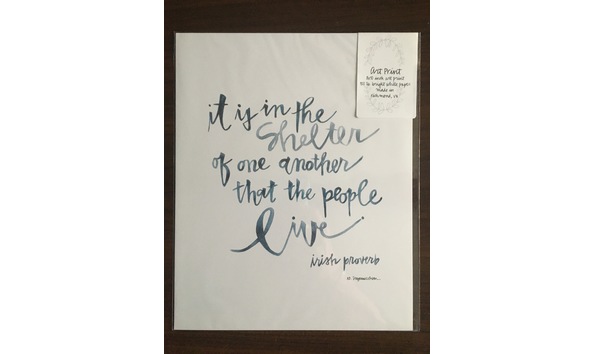 it is in the
shelter
of one another
that the people
live
irish proverb
Art Print
8x10 inch art print
made in
richmond, va